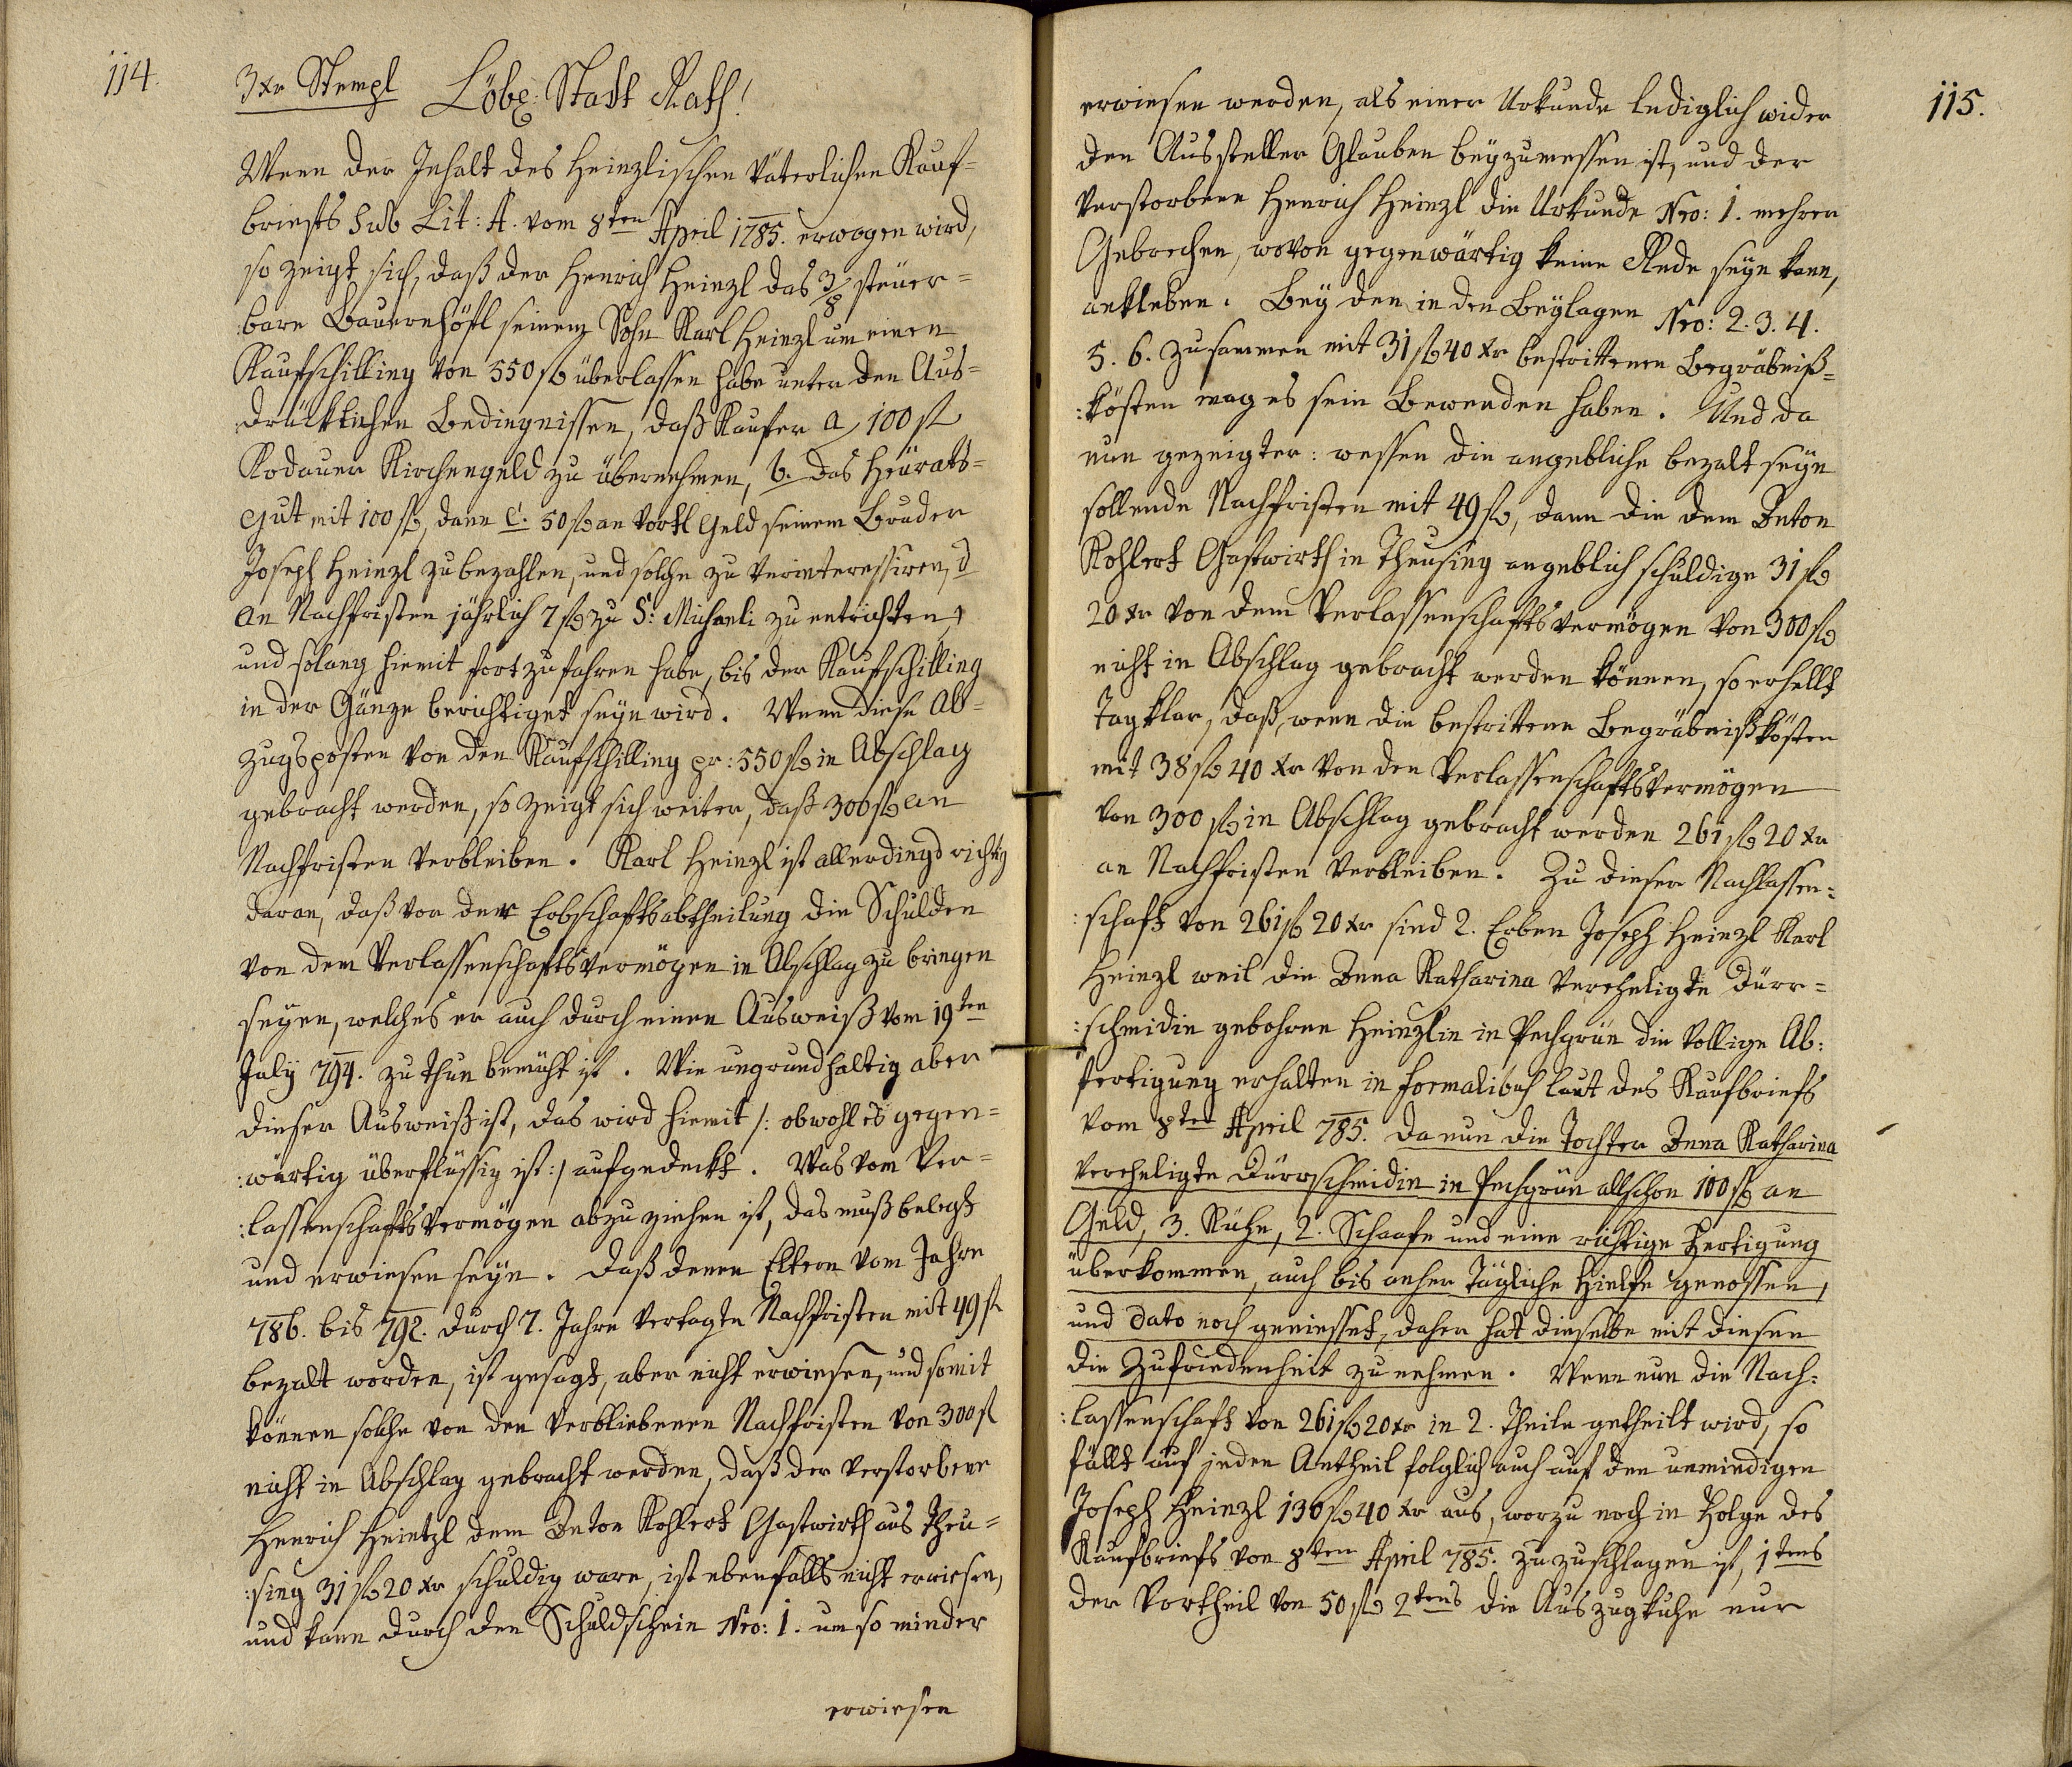 114.
3 xr Stempl Löbl: Stadt Rath!
Wenn der Jnhalt des Heinzlischen Väterlichen Kauf=
briefs sub Lit: A. vom 8ten April 1785. erwogen wird,
so zeigt sich, daß der Henrich Heinzl das 3/8 steüer=
bare Bauernhöfl seinem Sohn Karl Heinzl um einen
Kaufschilling von 550 fl überlassen habe unter den Aus=
drücklichen Bedingnissen, daß Kaufer a, 100 fl
Kodauer Kirchengeld zu übernehmen, b. das Heürats=
gut mit 100 fl, dann c. 50 fl an Vortl Geld seinem Bruder
Joseph Heinzl zu bezahlen, und solche zu verinteressiren, d
an Nachfristen jährlich 7 fl zu S: Michaeli zu entrichten,
und solang hiemit fortzufahren habe, bis der Kaufschilling
in der Gänze berichtiget seyn wird. Wenn diese Ab=
zugsposten von den Kaufschilling pr: 550 fl in Abschlag
gebracht werden, so zeigt sich weiter, daß 300 fl an
Nachfristen verbleiben. Karl Heinzl ist allerdings richtig
daran, daß vor der Erbschaftsabtheilung die Schulden
von dem Verlassenschaftsvermögen in Abschlag zu bringen
seyen, welches er auch durch einen Ausweiß vom 19ten
July 794. zu thun bemüht ist. Wie ungrundhaltig aber
dieser Ausweiß ist, das wird hiemit /: obwohl es gegen=
:wärtig überflüssig ist :/ aufgedeckt. Was vom Ver=
:lassenschaftsvermögen abzuziehen ist, das muß belegt
und erwiesen seyn. Daß denen Eltern vom Jahre
786. bis 792. durch 7. Jahre vertagte Nachfristen mit 49 fl
bezalt worden, ist gesagt, aber nicht erwiesen, und somit
können solche von den verbliebenen Nachfristen von 300 fl
nicht in Abschlag gebracht werden, daß der verstorbene
Henrich Heintzl dem Anton Kohlert Gastwirth aus Theu=
:sing 31 fl 20 xr schuldig ware, ist ebenfalls nicht erwiesen,
und kann durch den Schuldschein Nro: 1. um so minder
erwiesen
115.
erwiesen werden, als einer Urkunde lediglich wider
den Aussteller Glauben beyzumessen ist, und der
verstorbene Henrich Heinzl die Urkunde Nro: 1. mehrere
Gebrechen, wovon gegenwärtig keine Rede seyn kann,
ankleben. Bey den in den Beylagen Nro: 2. 3. 4.
5. 6. zusammen mit 31 fl 40 xr bestrittenen Begräbniß=
:kösten mag es sein Bewenden haben. Und da
nun gezeigter: wessen die angebliche bezalt seyn
sollende Nachfristen mit 49 fl, dann die dem Anton
Kohlert Gastwirth in Theusing angeblich schuldige 31 fl
20 xr von dem Verlassenschaftsvermögen von 300 fl
nicht in Abschlag gebracht werden können, so erhellt
Tagklar, daß, wenn die bestrittene Begräbnißkösten
mit 38 fl 40 xr von den Verlassenschaftsvermögen
von 300 fl in Abschlag gebracht werden 261 fl 20 xr
an Nachfristen verbleiben. Zu dieser Nachlassen=
:schaft von 261 fl 20 xr sind 2. Erben Joseph Heinzl Karl
Heinzl weil die Anna Katharina Verehligte Dürr=
:schmidin gebohrne Heinzlin in Pechgrün die Vollige Ab:
fertigung erhalten in formalibus laut des Kaufbriefs
vom 8ten April 785. da nun die Tochter Anna Katharina
verehligte Dürrschmidin in Pechgrün allschon 100 fl an
Geld, 3. Kühe, 2. Schaafe und eine richtige Fertigung
überkommen, auch bis anher tägliche Hielfe genossen,
und dato noch geniesset, daher hat dieselbe mit diesen
die Zufriedenheit zu nehmen. Wenn nun die Nach:
:lassenschaft von 261 fl 20 xr in 2. Theile getheilt wird, so
fällt auf jeden Antheil folglich auch auf den unmindigen
Joseph Heinzl 130 fl 40 xr aus, worzu noch in Folge des
Kaufbriefs von 8ten April 785. zu zuschlagen ist, 1tens
der Vortheil von 50 fl 2tens die Auszugkuhe nur